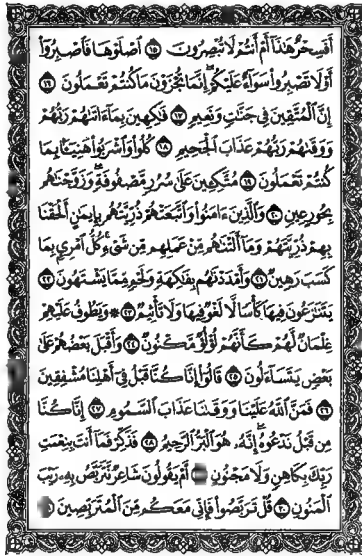 أَفَسِحْرٌ هَٰذَا أَمْ أَنتُمْ لَا تُبْصِرُونَ ١٥ ٱصْلَوْهَا فَٱصْبِرُوٓا۟
أَوْ لَا تَصْبِرُوا۟ سَوَآءٌ عَلَيْكُمْ إِنَّمَا تُجْزَوْنَ مَا كُنتُمْ تَعْمَلُونَ ١٦
إِنَّ ٱلْمُتَّقِينَ فِى جَنَّٰتٍ وَنَعِيمٍ ١٧ فَٰكِهِينَ بِمَآ ءَاتَىٰهُمْ رَبُّهُمْ
وَوَقَىٰهُمْ رَبُّهُمْ عَذَابَ ٱلْجَحِيمِ ١٨ كُلُوا۟ وَٱشْرَبُوا۟ هَنِيٓـًٔۢا بِمَا
كُنتُمْ تَعْمَلُونَ ١٩ مُتَّكِـِٔينَ عَلَىٰ سُرُرٍ مَّصْفُوفَةٍ وَزَوَّجْنَٰهُم
بِحُورٍ عِينٍ ٢٠ وَٱلَّذِينَ ءَامَنُوا۟ وَٱتَّبَعَتْهُمْ ذُرِّيَّتُهُم بِإِيمَٰنٍ أَلْحَقْنَا
بِهِمْ ذُرِّيَّتَهُمْ وَمَآ أَلَتْنَٰهُم مِّنْ عَمَلِهِم مِّن شَىْءٍ كُلُّ ٱمْرِئٍۭ بِمَا
كَسَبَ رَهِينٌ ٢١ وَأَمْدَدْنَٰهُم بِفَٰكِهَةٍ وَلَحْمٍ مِّمَّا يَشْتَهُونَ ٢٢
يَتَنَٰزَعُونَ فِيهَا كَأْسًا لَّا لَغْوٌ فِيهَا وَلَا تَأْثِيمٌ ٢٣ ۞ وَيَطُوفُ عَلَيْهِمْ
غِلْمَانٌ لَّهُمْ كَأَنَّهُمْ لُؤْلُؤٌ مَّكْنُونٌ ٢٤ وَأَقْبَلَ بَعْضُهُمْ عَلَىٰ
بَعْضٍ يَتَسَآءَلُونَ ٢٥ قَالُوٓا۟ إِنَّا كُنَّا قَبْلُ فِىٓ أَهْلِنَا مُشْفِقِينَ
٢٦ فَمَنَّ ٱللَّهُ عَلَيْنَا وَوَقَىٰنَا عَذَابَ ٱلسَّمُومِ ٢٧ إِنَّا كُنَّا
مِن قَبْلُ نَدْعُوهُ إِنَّهُۥ هُوَ ٱلْبَرُّ ٱلرَّحِيمُ ٢٨ فَذَكِّرْ فَمَآ أَنتَ بِنِعْمَتِ
رَبِّكَ بِكَاهِنٍ وَلَا مَجْنُونٍ أَمْ يَقُولُونَ شَاعِرٌ نَّتَرَبَّصُ بِهِۦ رَيْبَ
ٱلْمَنُونِ ٣٠ قُلْ تَرَبَّصُوا۟ فَإِنِّى مَعَكُم مِّنَ ٱلْمُتَرَبِّصِينَ